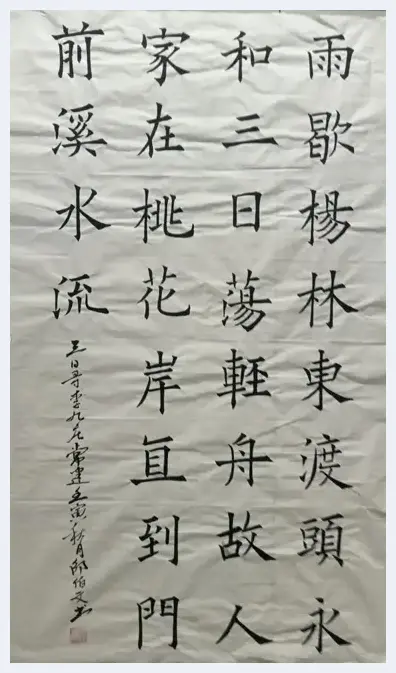 雨歇楊林東渡頭永
和三日蕩輕舟故人
家在桃花岸直到門
前溪水流
三日寻李九庄常建壬寅秋月邱伯文书